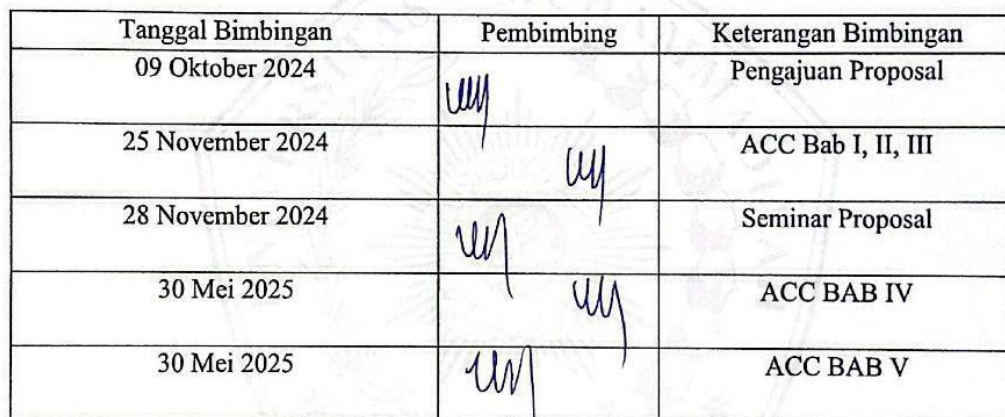 Tanggal Bimbingan Pembimbing Keterangan Bimbingan
09 Oktober 2024 Pengajuan Proposal
25 November 2024 ACC Bab I, II, III
28 November 2024 Seminar Proposal
30 Mei 2025 ACC BAB IV
30 Mei 2025 ACC BAB V